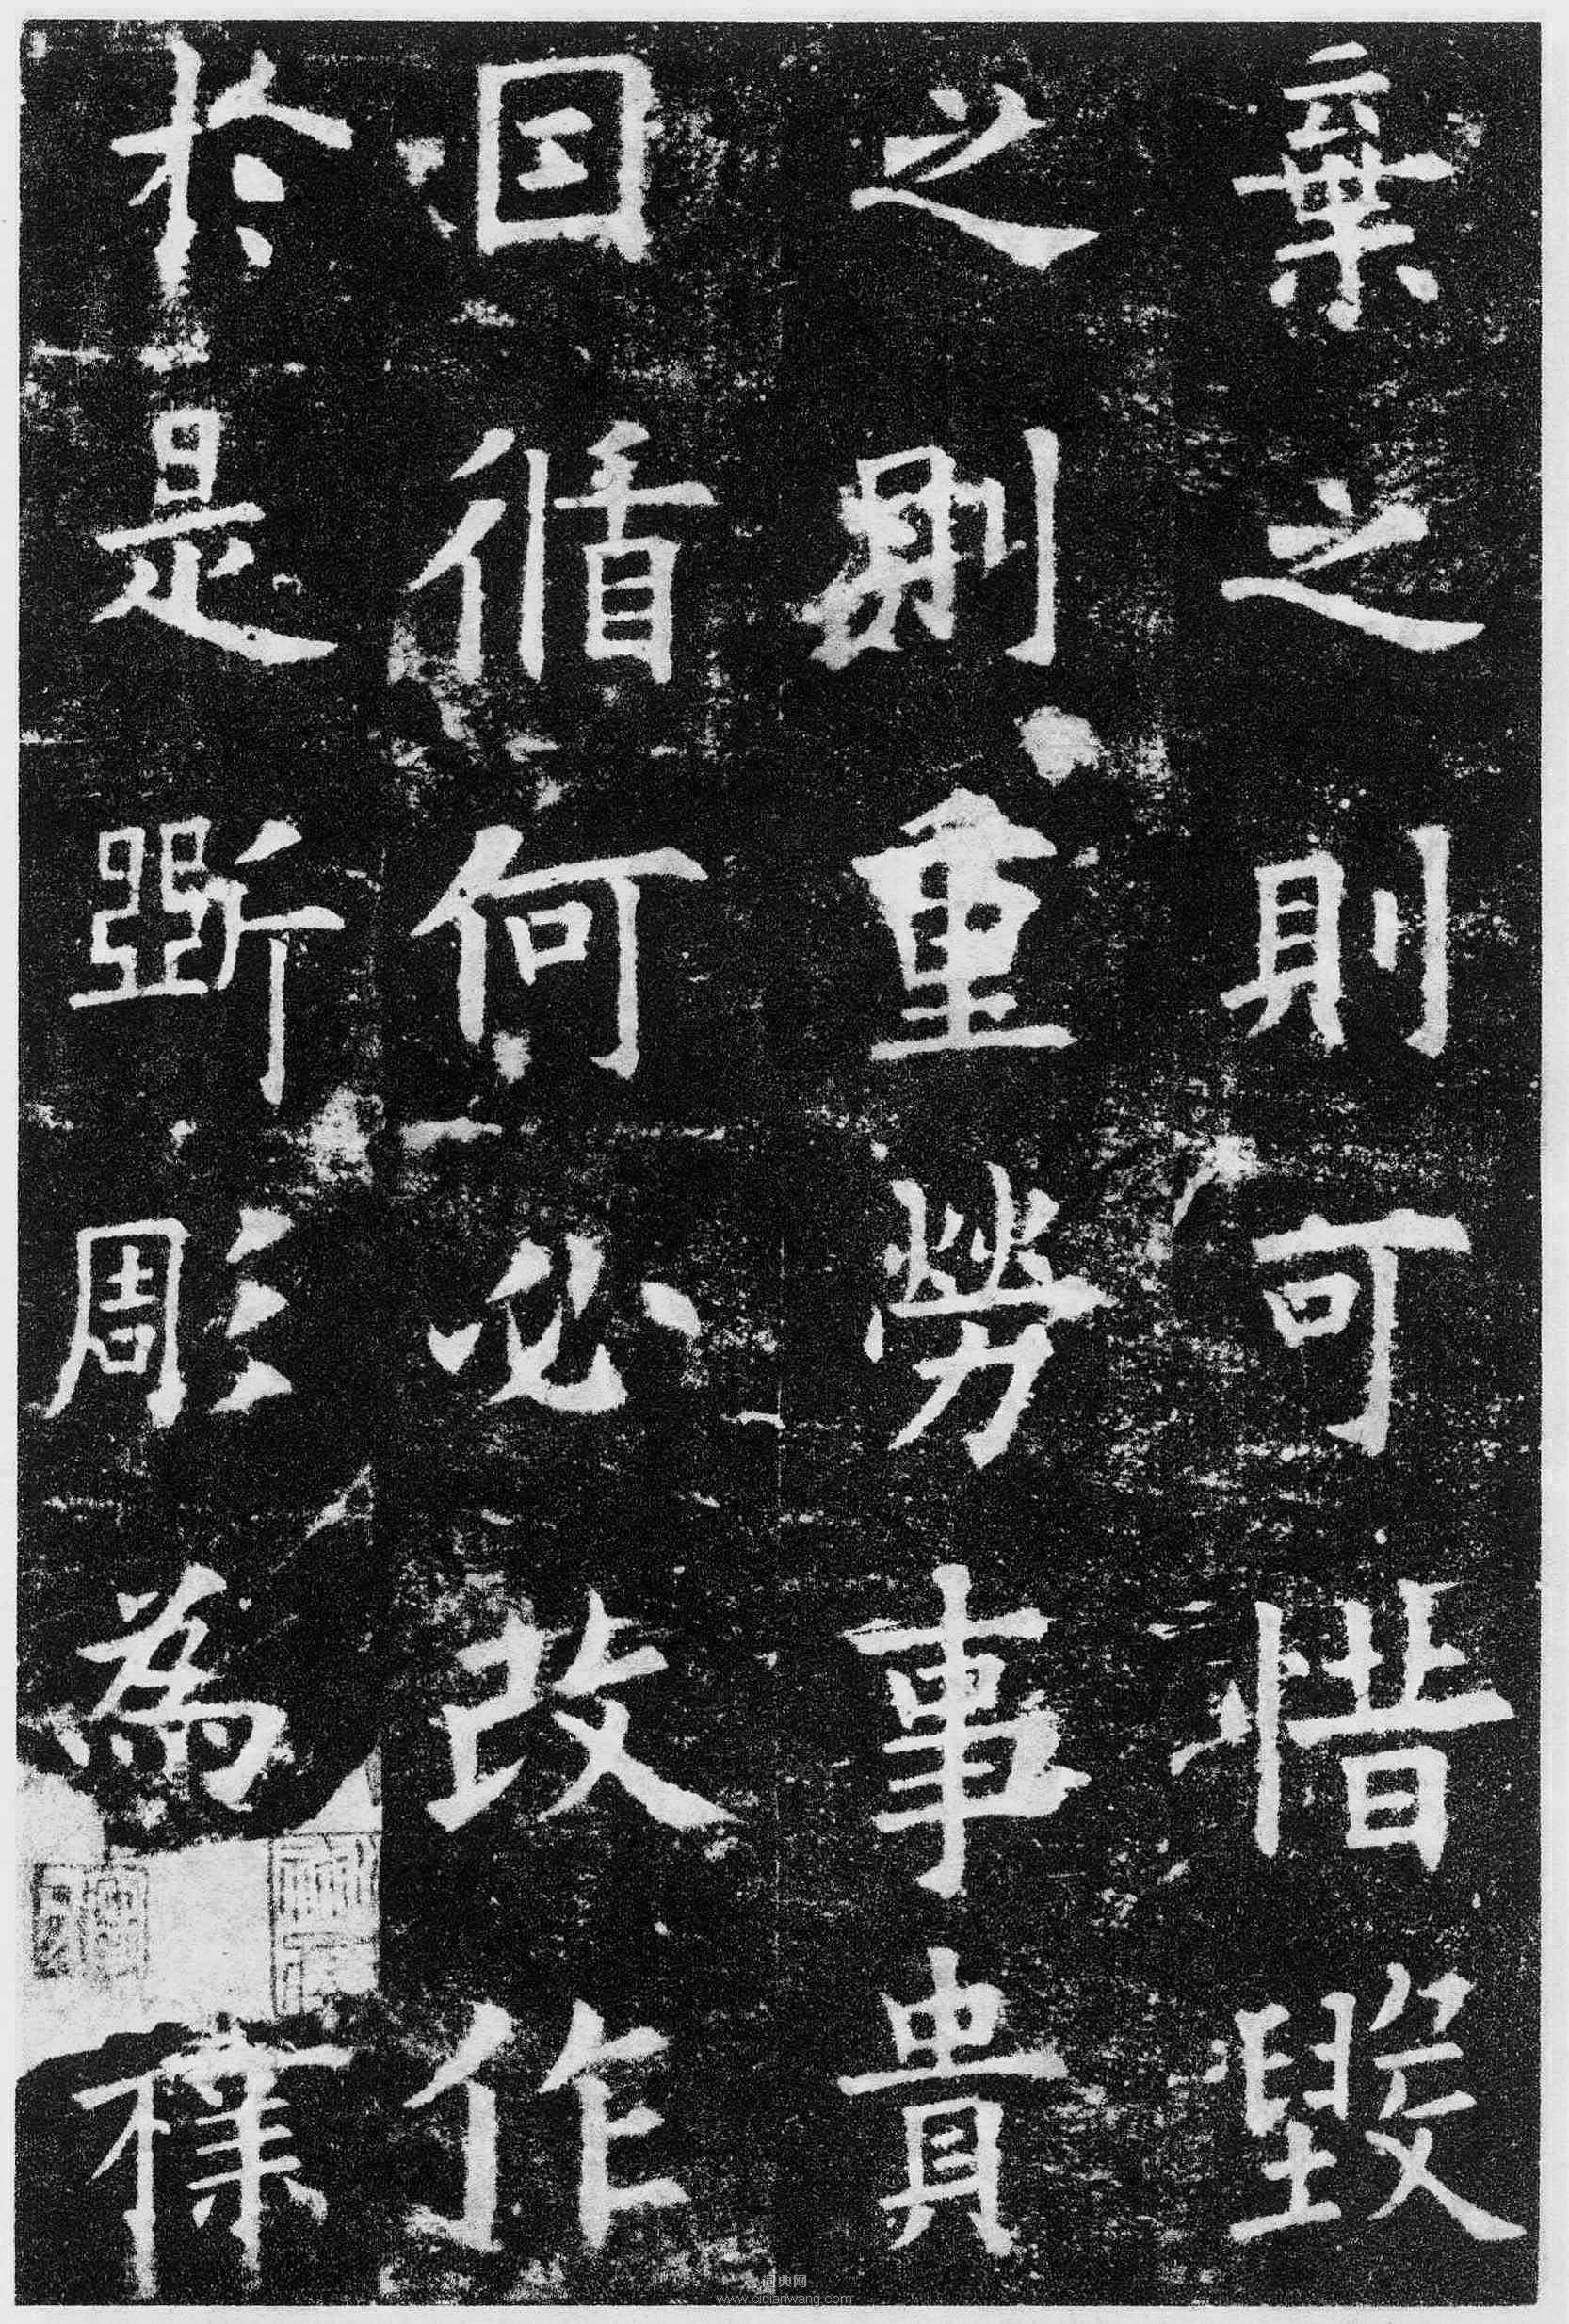 棄之則可惜毀
之則重勞事貴
因循何必改作
於是斲彫為樸
词典网
www.cidianwang.com